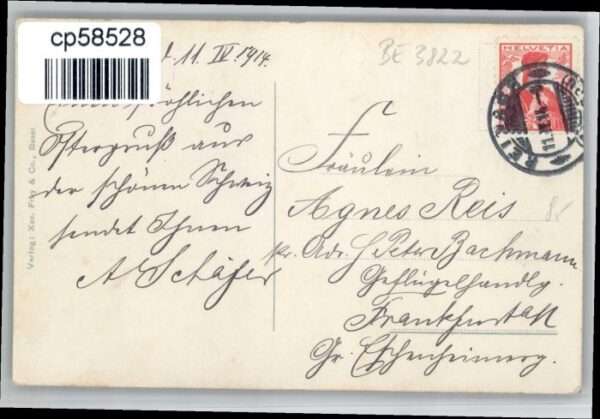 cp58528
11. IV. 1914.
BE 3822
HELVETIA
fröhlichen
Ostergruß aus
der schönen Schweiz
sendet Ihnen
A Schäfer
Fräulein
Agnes Reis
pr. Adr. H Peter Bachmann
Geflügelhandlg.
Frankfurt a/M
Gr. Eschenheimerg.
Verlag: Xav. Frey & Co., Basel